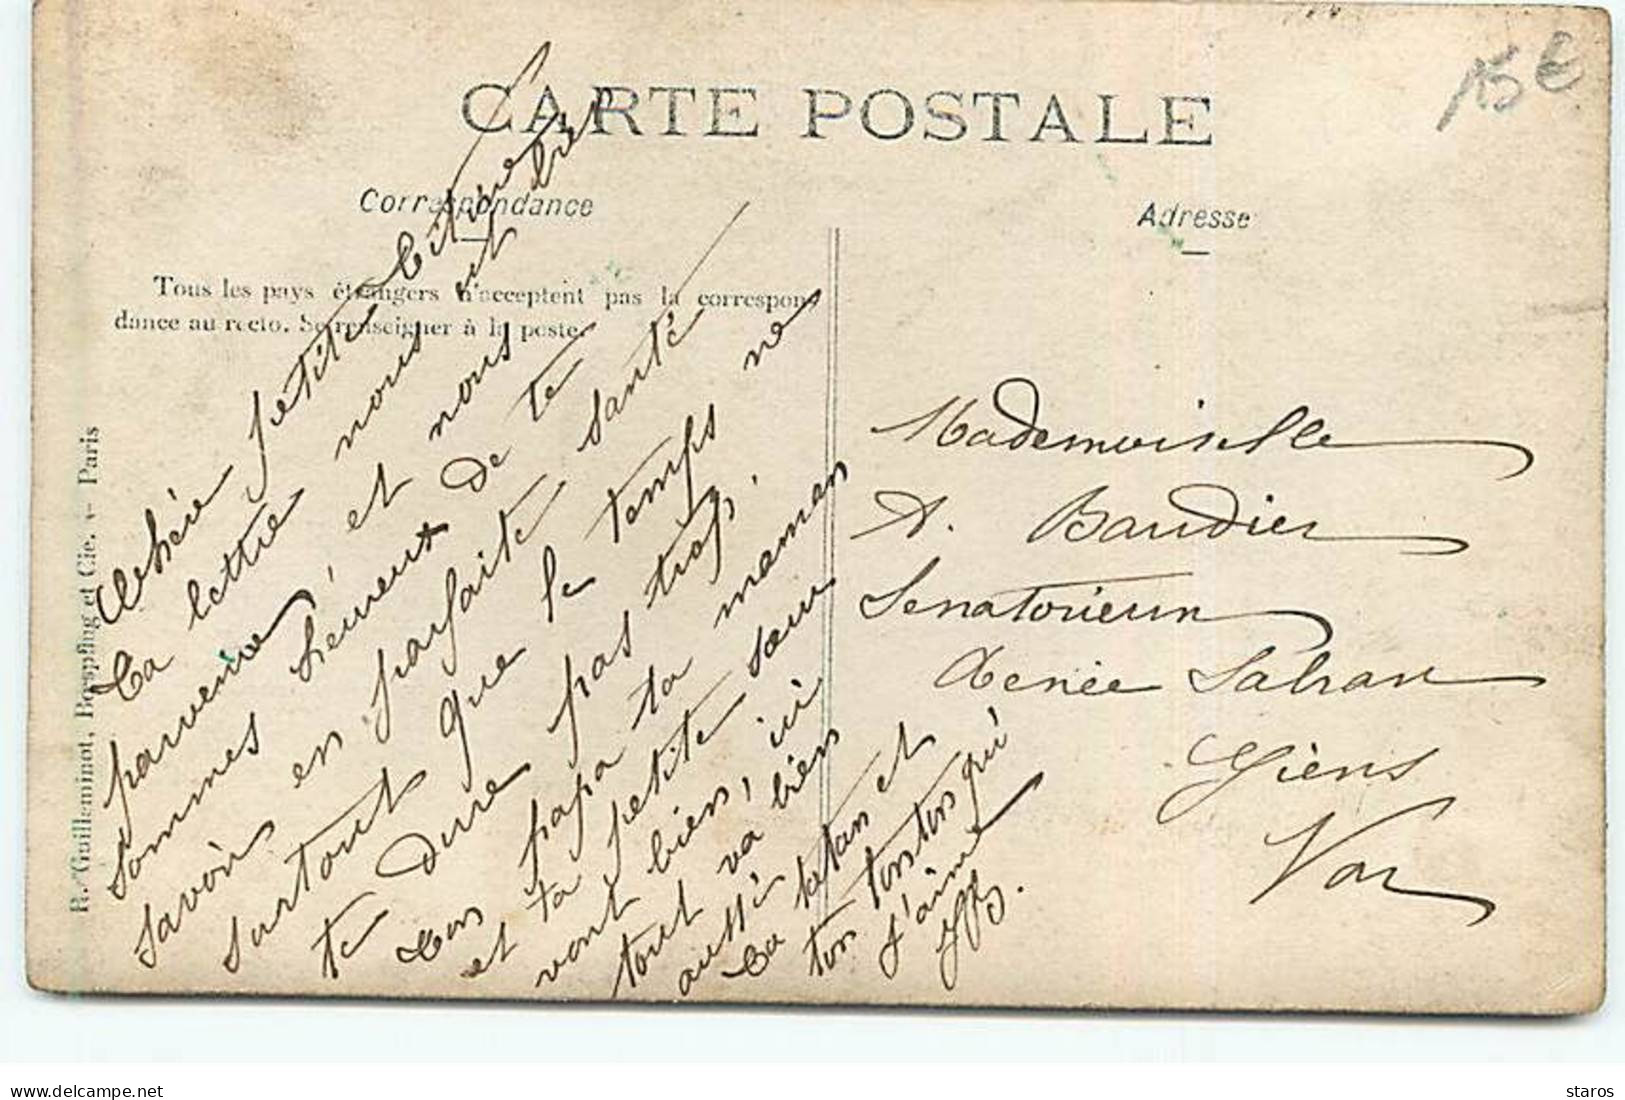 CARTE POSTALE
15 €
Correspondance
Adresse
Tous les pays étrangers n'acceptent pas la correspon-
dance au recto. Se renseigner à la poste.
R. Guilleminot, Bœspflug et Cie. — Paris
Chère petite Titine
Ta lettre nous est bien
parvenue et nous
sommes heureux de te
savoir en parfaite santé
surtout que le temps ne
te dure pas trop.
Ton papa ta maman
et ta petite sœur
vont bien, ici
tout va bien
aussi
Ta tatan et
ton tonton qui
t'aime
Mademoiselle
A. Baudier
Senatorium
Renée Sabran
Giens
Var
delcampe.net
staros